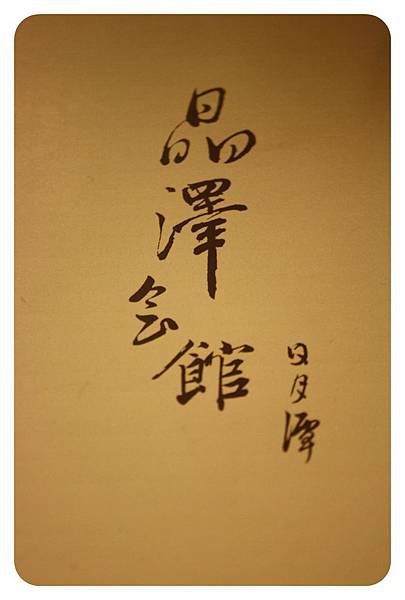 日月潭
晶澤会館